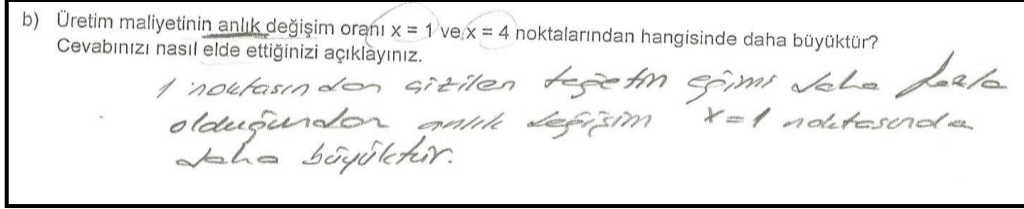 b) Üretim maliyetinin anlık değişim oranı x = 1 ve x = 4 noktalarından hangisinde daha büyüktür?
Cevabınızı nasıl elde ettiğinizi açıklayınız.
1 noktasından çizilen teğetin eğimi daha fazla
olduğundan anlık değişim x=1 noktasında
daha büyüktür.